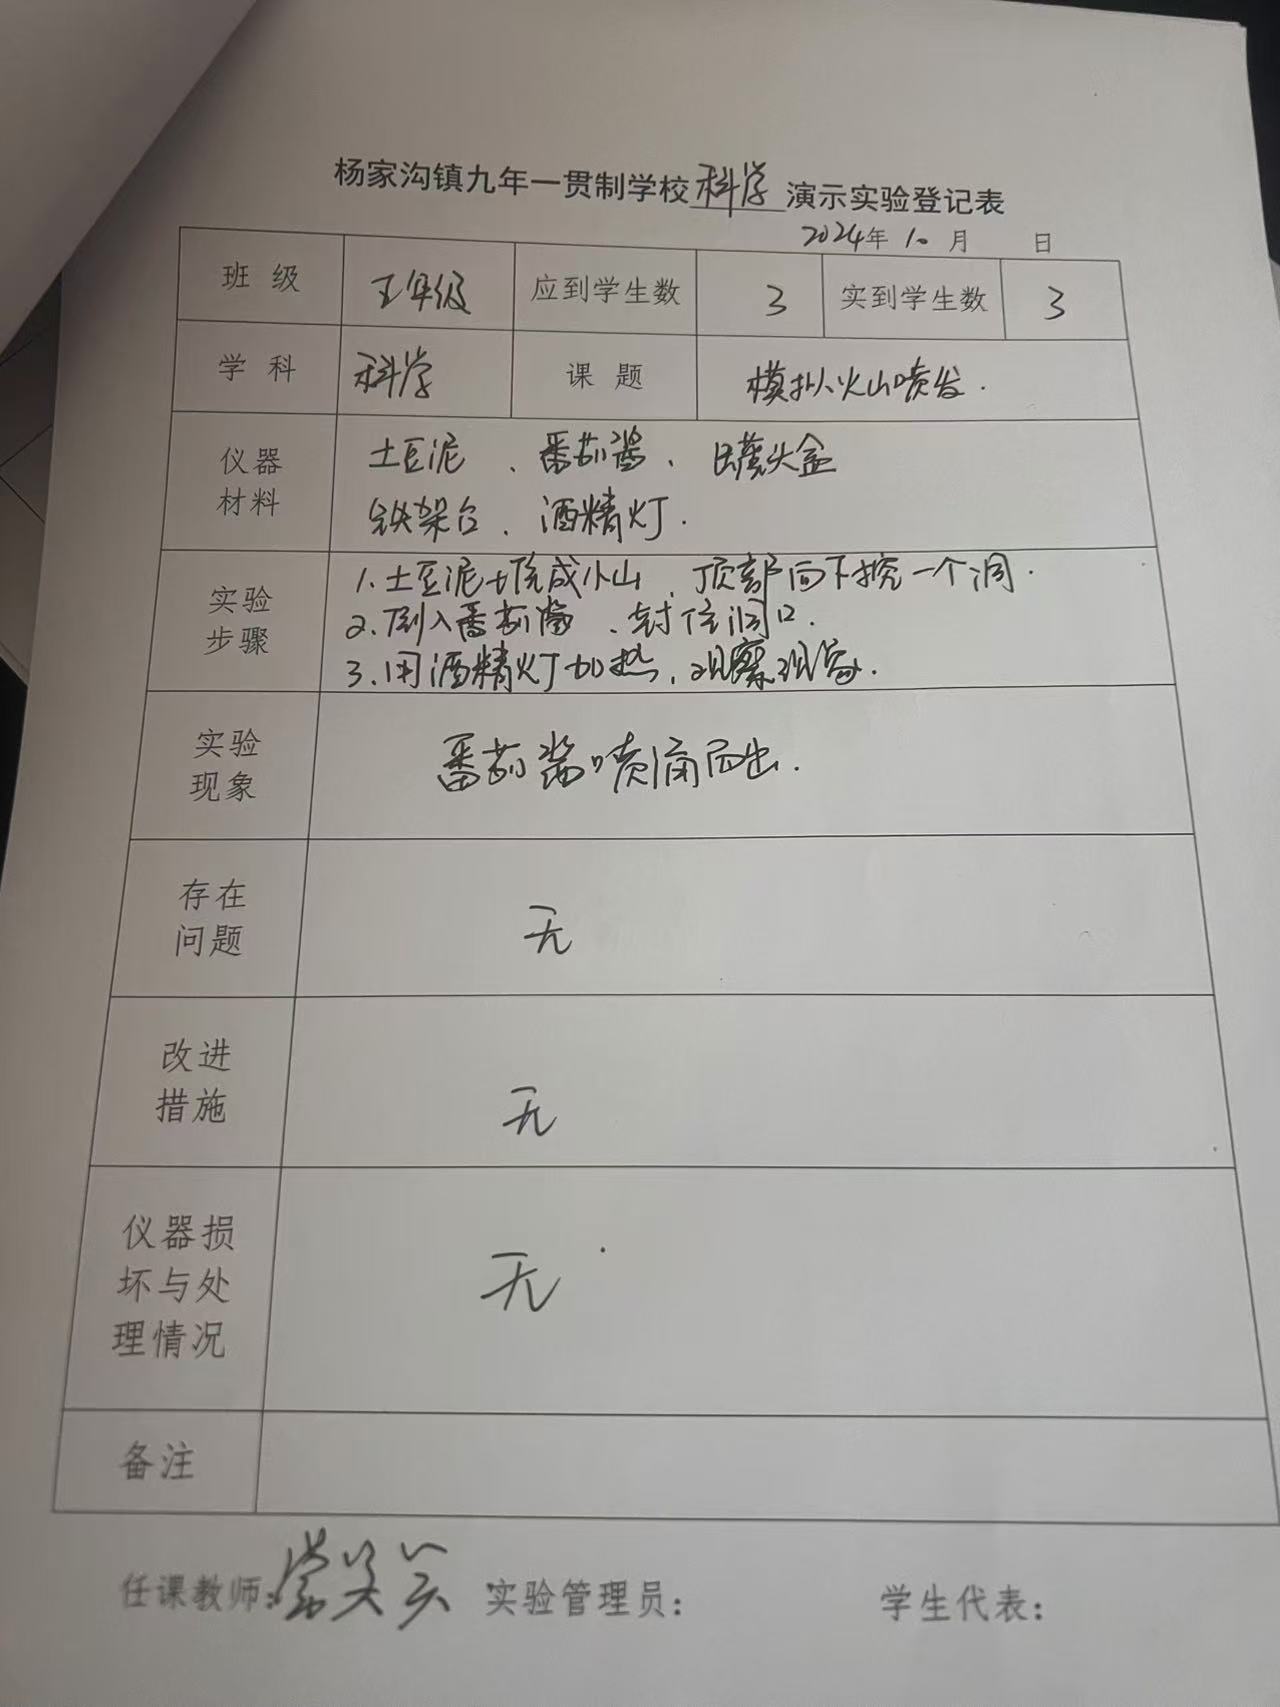 杨家沟镇九年一贯制学校科学演示实验登记表
2024年10月 日
班级 五年级 应到学生数 3 实到学生数 3
学科 科学 课题 模拟火山喷发.
仪器材料 土豆泥、番茄酱、罐头盒
铁架台、酒精灯.
实验步骤 1.土豆泥堆成小山,顶部向下挖一个洞.
2.倒入番茄酱、封住洞口.
3.用酒精灯加热,观察现象.
实验现象 番茄酱喷涌而出.
存在问题 无
改进措施 无
仪器损坏与处理情况 无
备注
任课教师: 实验管理员: 学生代表: